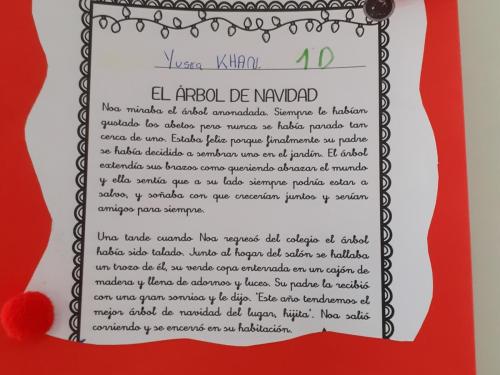 Yuseq KHAN. 1D
EL ÁRBOL DE NAVIDAD
Noa miraba el árbol anonadada. Siempre le habían
gustado los abetos pero nunca se había parado tan
cerca de uno. Estaba feliz porque finalmente su padre
se había decidido a sembrar uno en el jardín. El árbol
extendía sus brazos como queriendo abrazar el mundo
y ella sentía que a su lado siempre podría estar a
salvo, y soñaba con que crecerían juntos y serían
amigos para siempre.
Una tarde cuando Noa regresó del colegio el árbol
había sido talado. Junto al hogar del salón se hallaba
un trozo de él, su verde copa enterrada en un cajón de
madera y llena de adornos y luces. Su padre la recibió
con una gran sonrisa y le dijo. "Este año tendremos el
mejor árbol de navidad del lugar, hijita". Noa salió
corriendo y se encerró en su habitación.